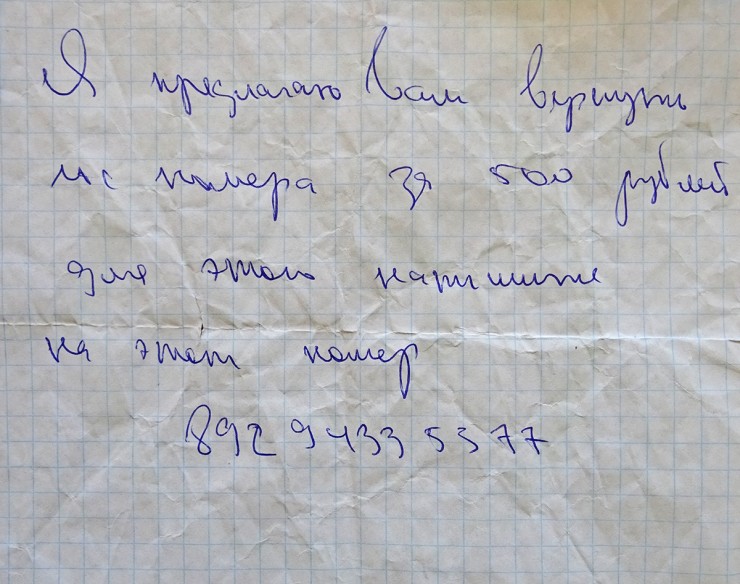 Я предлагаю Вам вернуть
гос номера за 500 рублей
для этого напишите
на этот номер
892 9433 5577